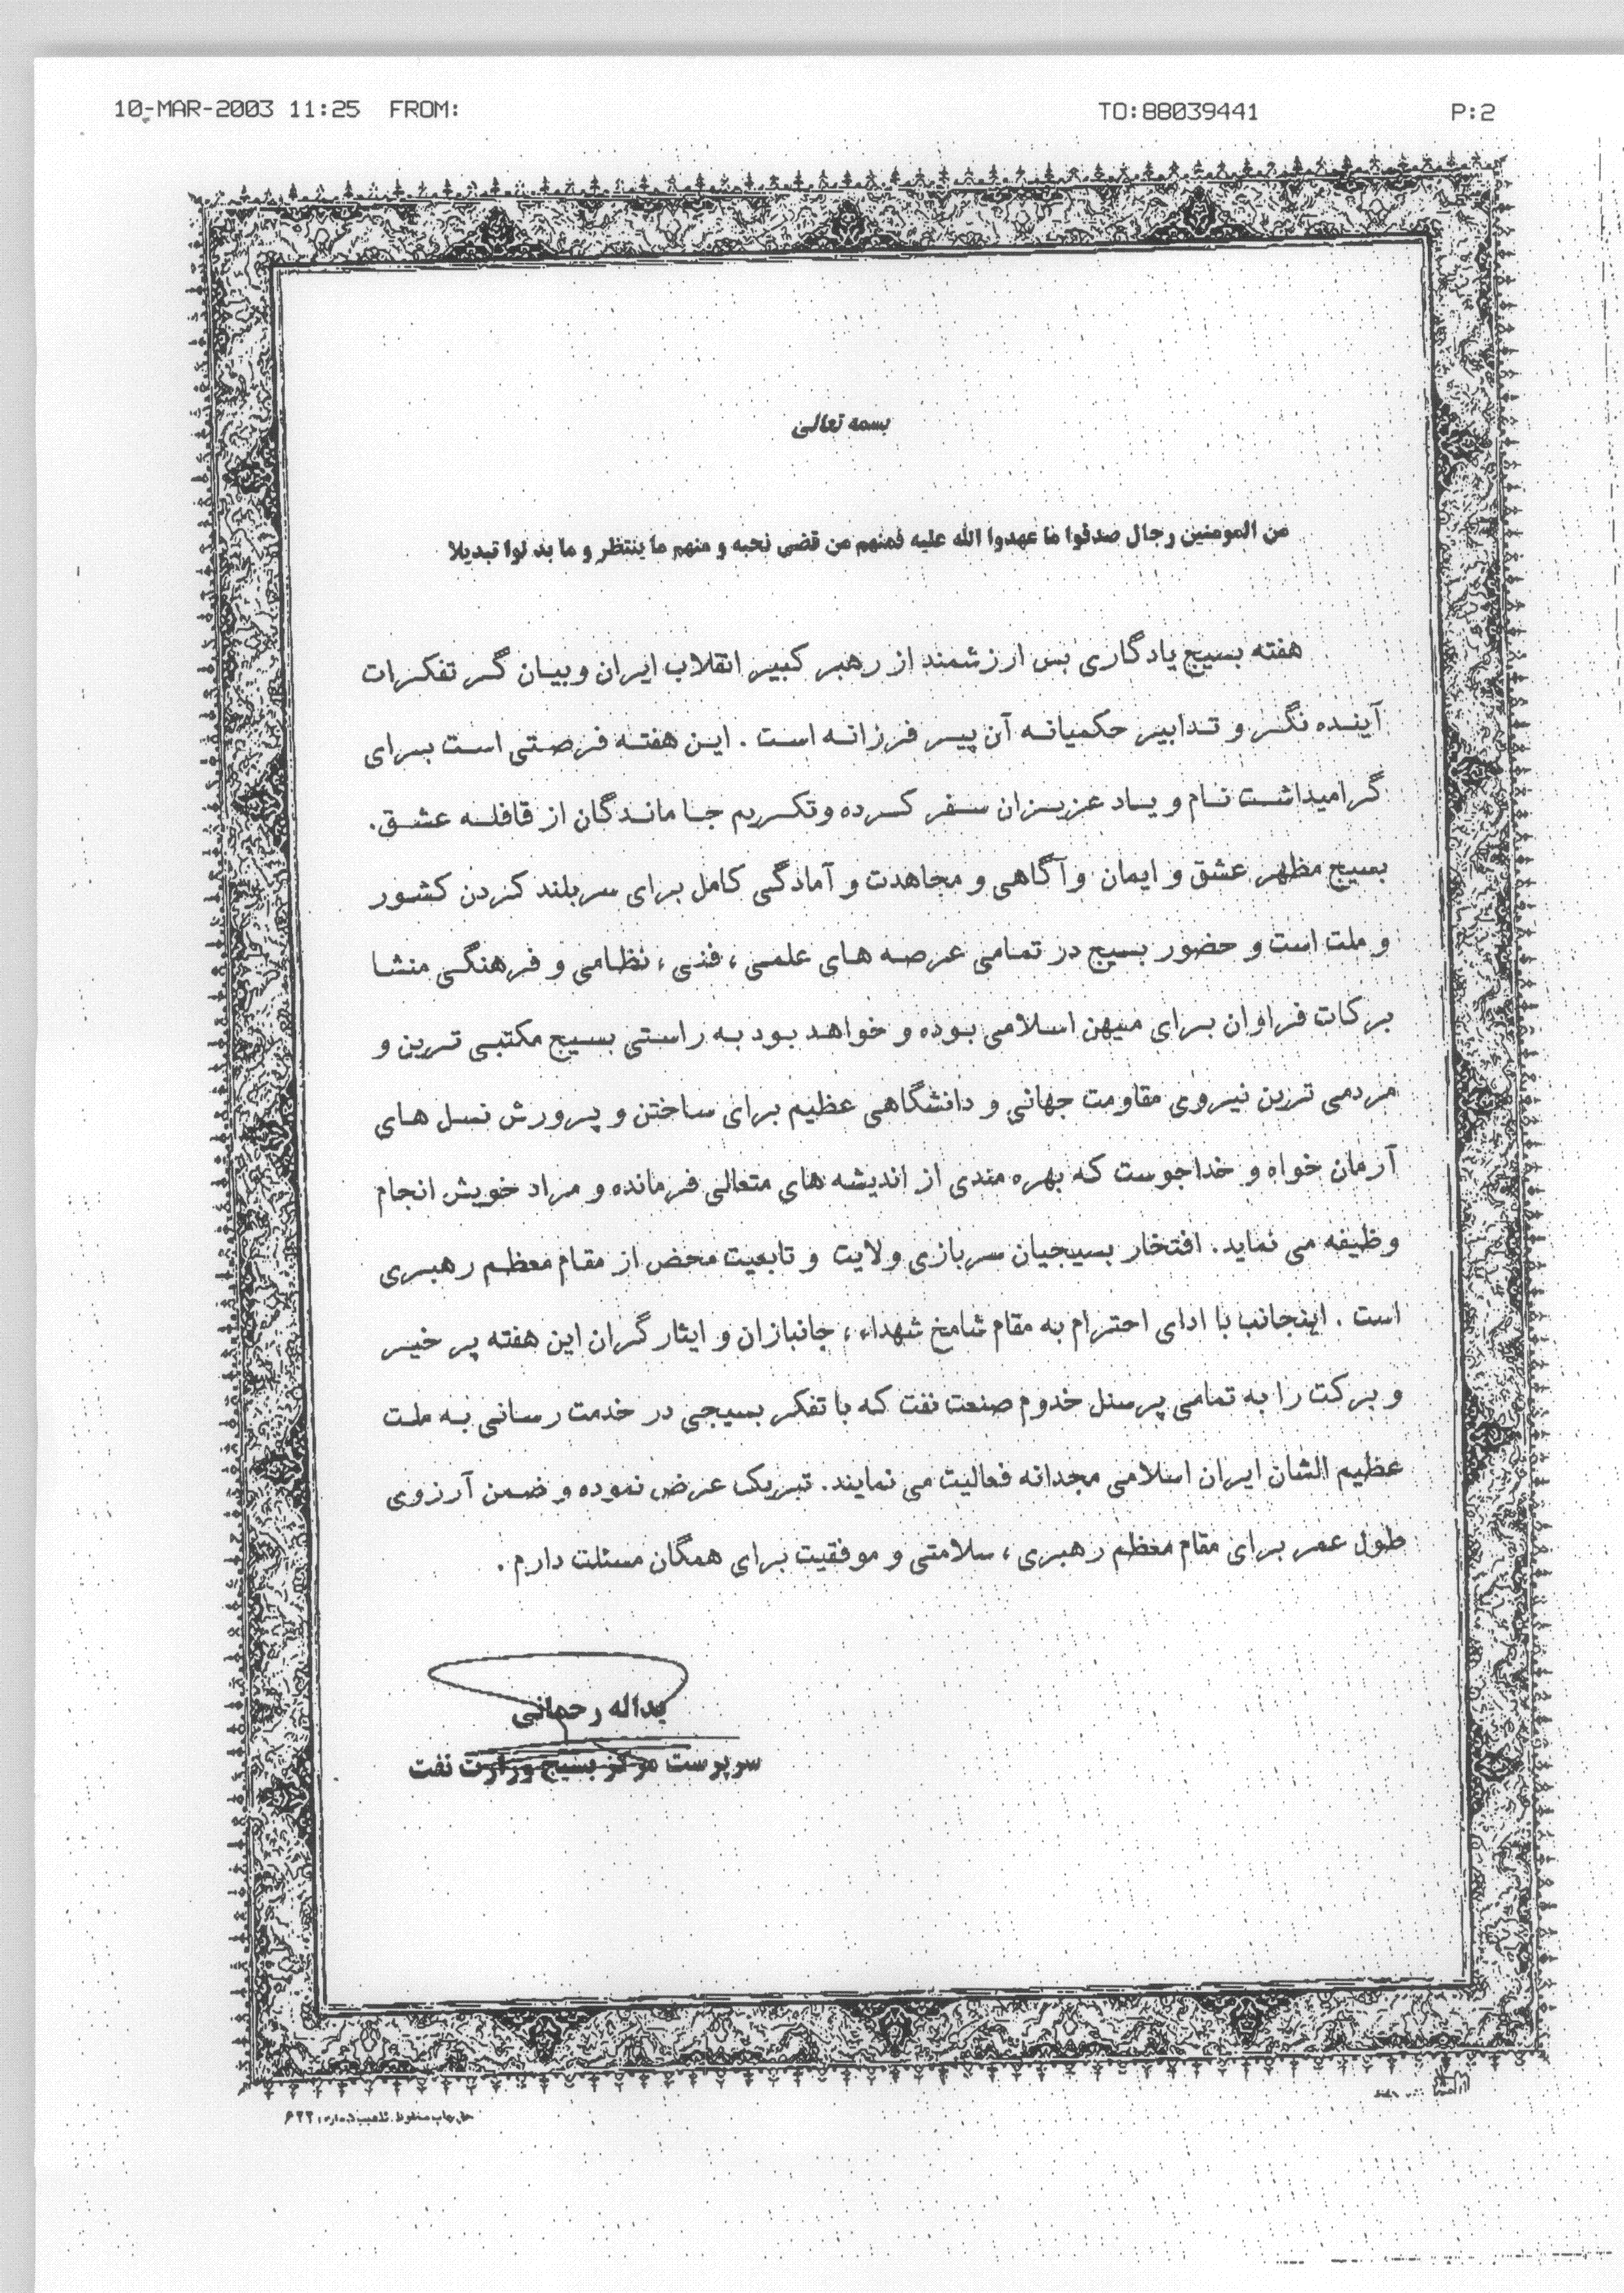 10-MAR-2003 11:25 FROM: TO:88039441 P:2
بسمه تعالی
من المومنین رجال صدقوا ما عهدوا الله علیه فمنهم من قضی نحبه و منهم ما ینتظر و ما بد لوا تبدیلا
هفته بسیج یادگاری بس ارزشمند از رهبر کبیر انقلاب ایران وبیان گر تفکرات
آینده نگر و تدابیر حکمیانه آن پیر فرزانه است . این هفته فرصتی است برای
گرامیداشت نام و یاد عزیزان سفر کرده وتکریم جا ماندگان از قافله عشق.
بسیج مظهر عشق و ایمان وآگاهی و مجاهدت و آمادگی کامل برای سربلند کردن کشور
و ملت است و حضور بسیج در تمامی عرصه های علمی ، فنی ، نظامی و فرهنگی منشا
برکات فراوان برای میهن اسلامی بوده و خواهد بود به راستی بسیج مکتبی ترین و
مردمی ترین نیروی مقاومت جهانی و دانشگاهی عظیم برای ساختن و پرورش نسل های
آرمان خواه و خداجوست که بهره مندی از اندیشه های متعالی فرمانده و مراد خویش انجام
وظیفه می نماید. افتخار بسیجیان سربازی ولایت و تابعیت محض از مقام معظم رهبری
است . اینجانب با ادای احترام به مقام شامخ شهداء ، جانبازان و ایثار گران این هفته پر خیر
و برکت را به تمامی پرسنل خدوم صنعت نفت که با تفکر بسیجی در خدمت رسانی به ملت
عظیم الشان ایران اسلامی مجدانه فعالیت می نمایند. تبریک عرض نموده و ضمن آرزوی
طول عمر برای مقام معظم رهبری ، سلامتی و موفقیت برای همگان مسئلت دارم .
یداله رحمانی
سرپرست مرکز بسیج وزارت نفت